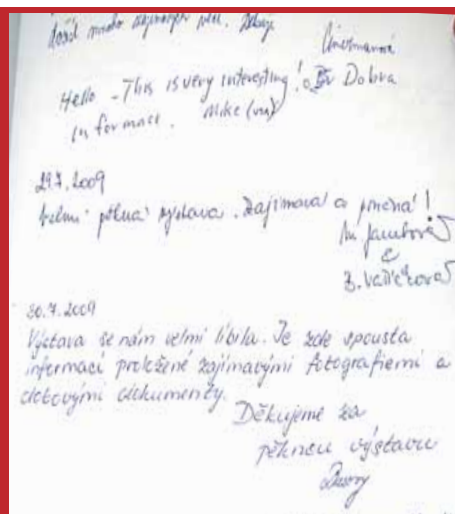 dost mnoho zajímavých věcí. Děkuji
Hello - This is very interesting! Dobra
informace. Mike (
29.7.2009
Velmi pěkná výstava. Zajímavá a poučná!
M. Jakubová
&
B. Vašíčková
30.7.2009
Výstava se nám velmi líbila. Je zde spousta
informací proložené zajímavými fotografiemi a
dobovými dokumenty.
Děkujeme za
pěknou výstavu